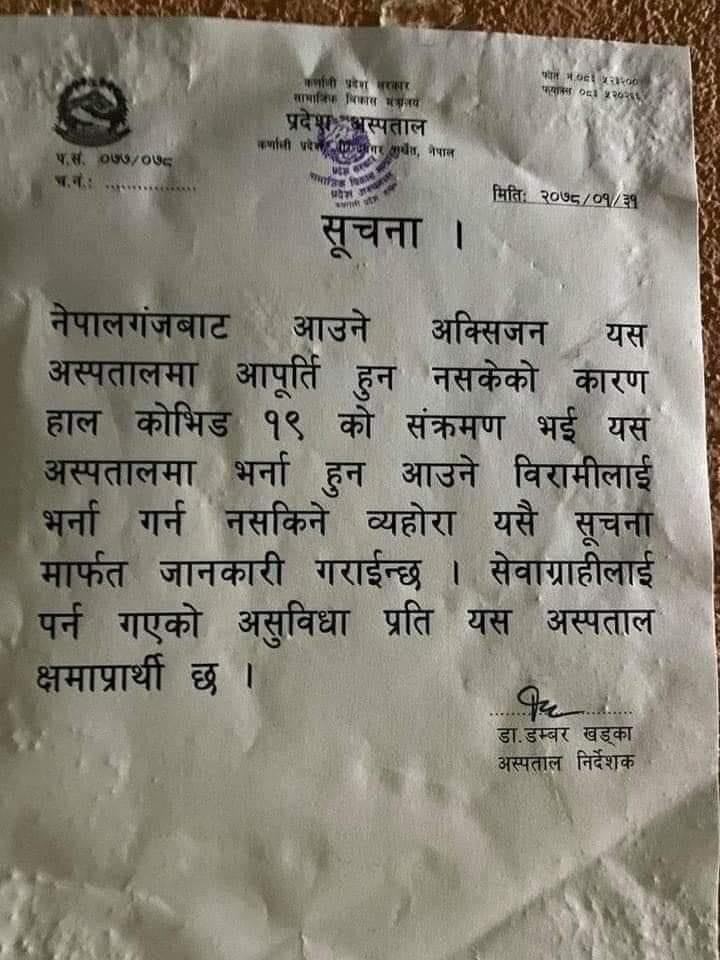 कर्णाली प्रदेश सरकार
सामाजिक विकास मन्त्रालय
प्रदेश अस्पताल
कर्णाली प्रदेश, सुर्खेत, नेपाल
फोन नं.०८३ ५२३२००
फ्याक्स ०८३ ५२०२६६
प.सं. ०७७/०७८
च.नं.: ................
मिति: २०७८/०१/३१
सूचना ।
नेपालगंजबाट आउने अक्सिजन यस
अस्पतालमा आपूर्ति हुन नसकेको कारण
हाल कोभिड १९ को संक्रमण भई यस
अस्पतालमा भर्ना हुन आउने विरामीलाई
भर्ना गर्न नसकिने व्यहोरा यसै सूचना
मार्फत जानकारी गराईन्छ । सेवाग्राहीलाई
पर्न गएको असुविधा प्रति यस अस्पताल
क्षमाप्रार्थी छ ।
डा.डम्बर खड्का
अस्पताल निर्देशक